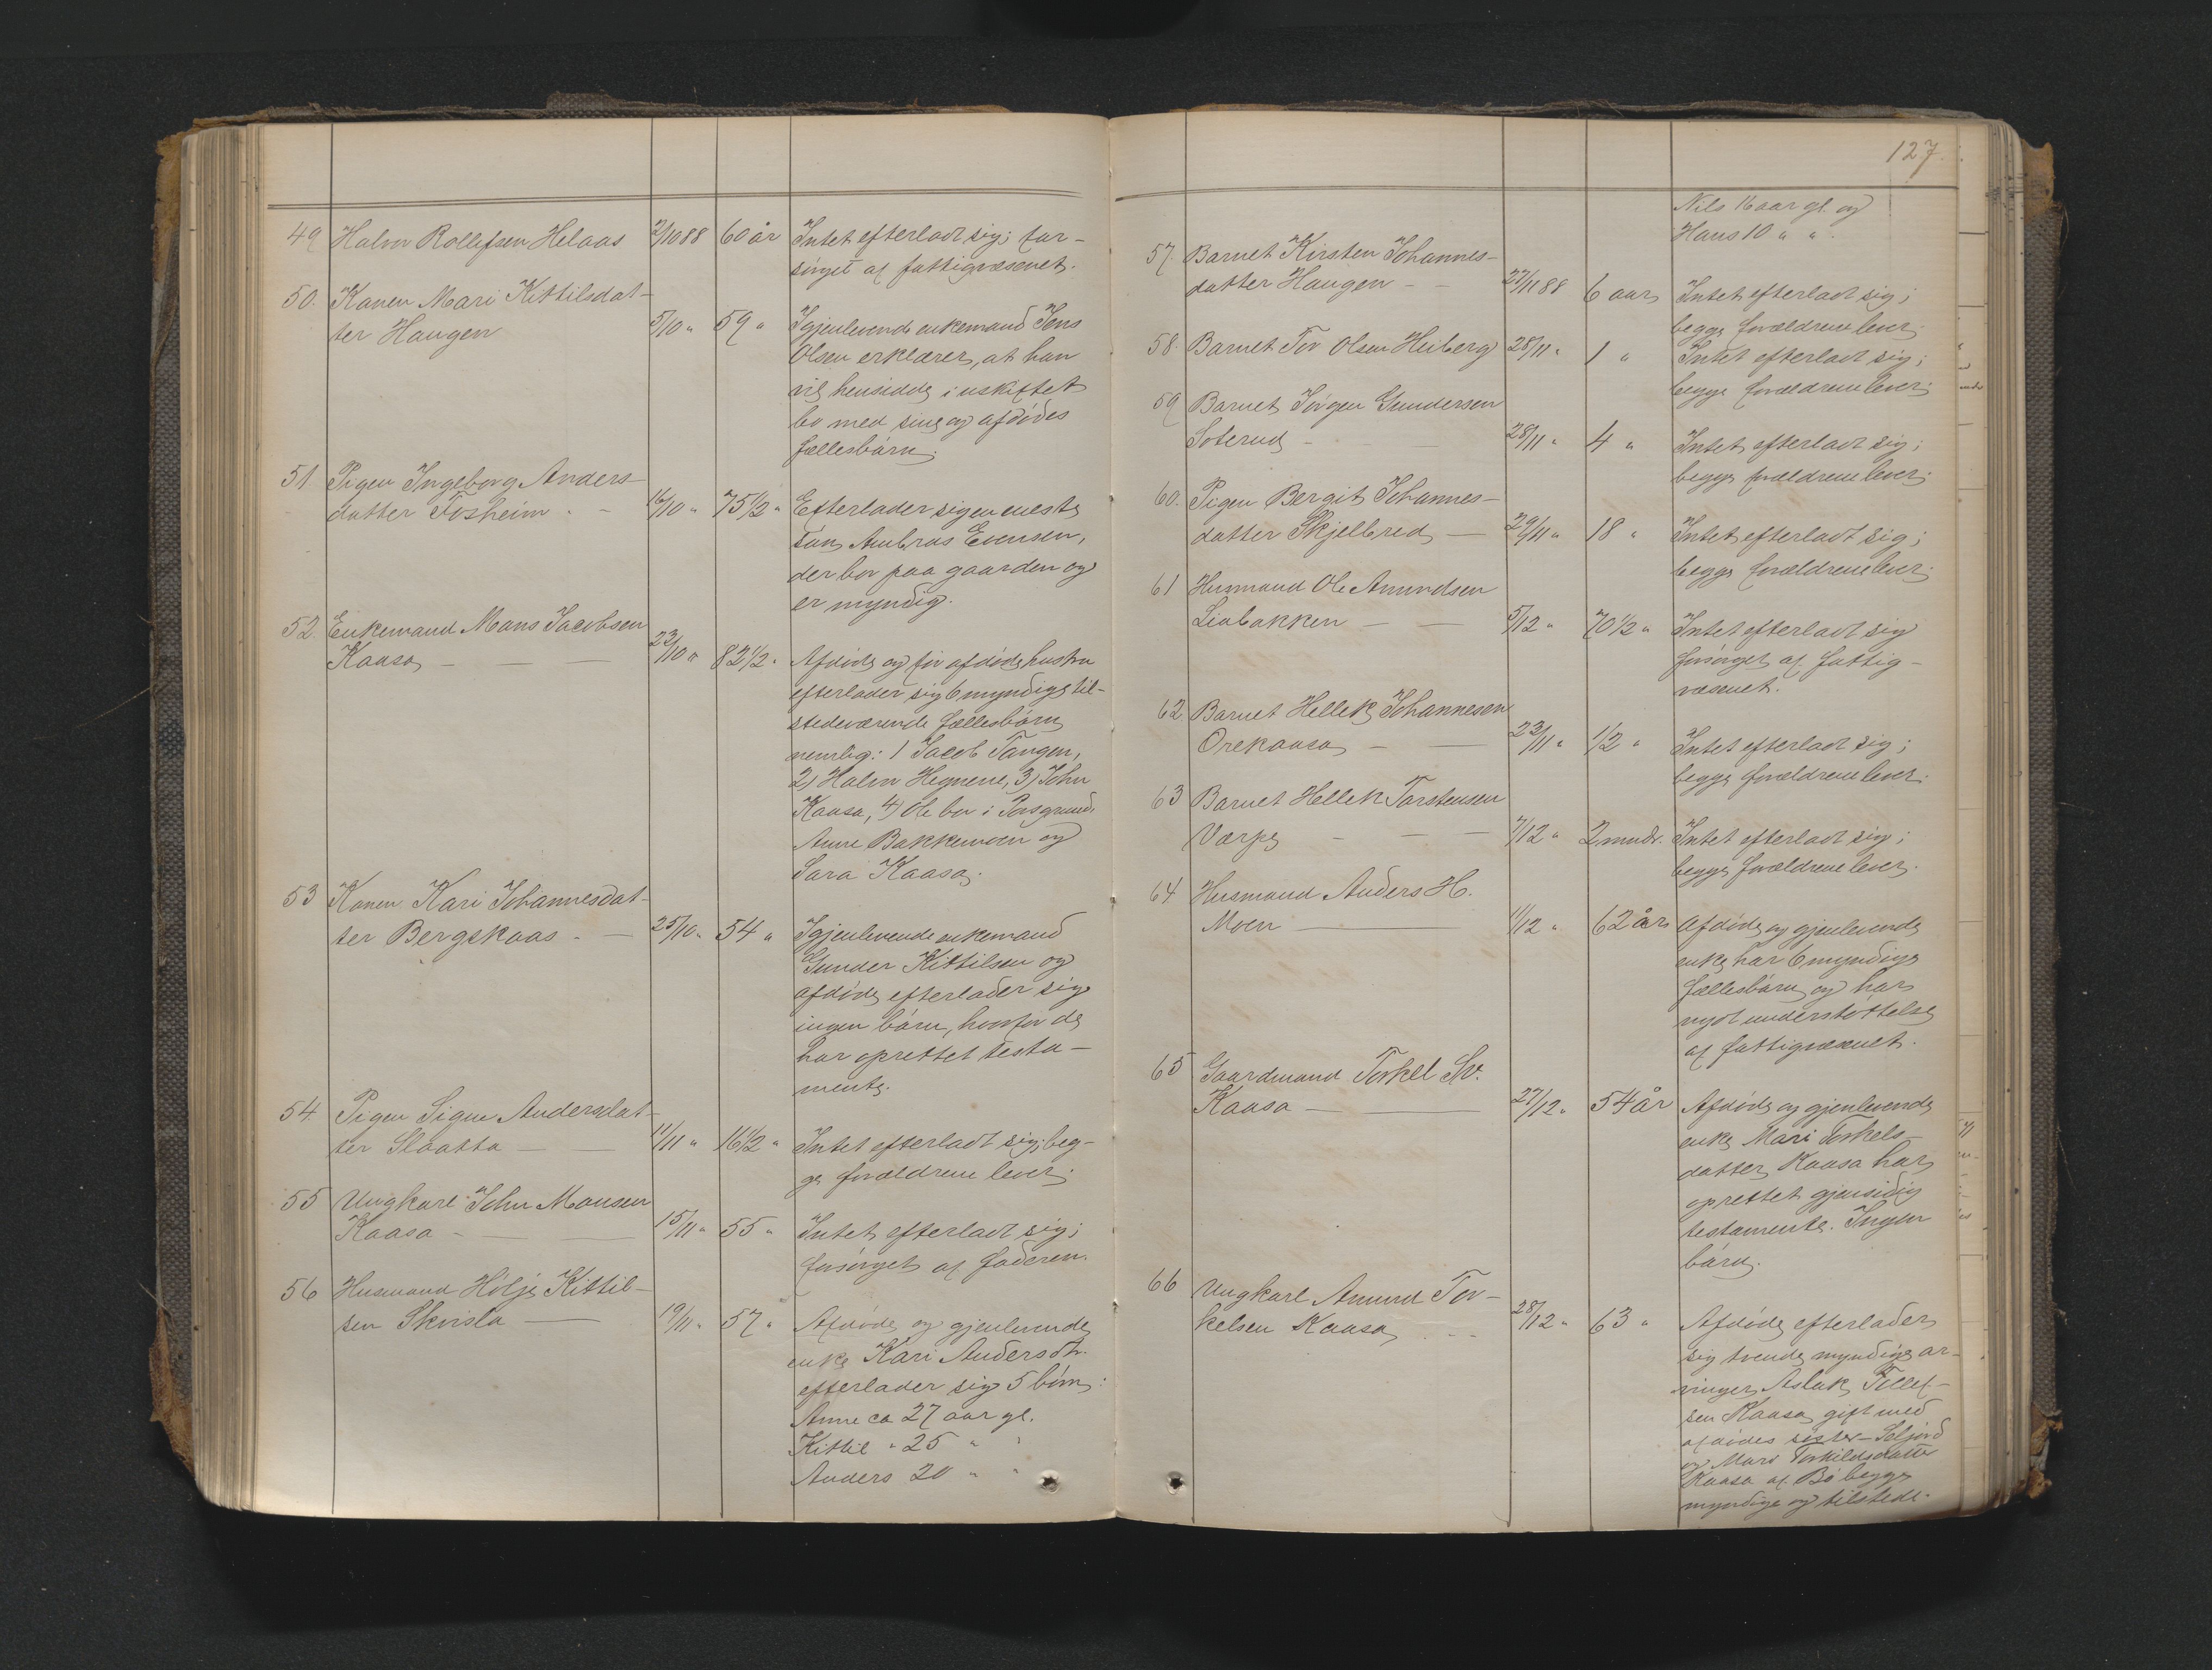 49 Halvor Rollefsen Helaas 2/10 88 60 år Intet efterladt sig; for-
sörget af fattigvæsenet.
50. Konen Mari Kittilsdat-
ter Haugen 5/10 " 59 " Igjenlevende enkemand Jens
Olsen erklærer, at han
vil hensidde i uskiftet
bo med sine og afdödes
fællesbörn.
51 Pigen Ingeborg Anders-
datter Forsheim - - 16/10 " 75 1/2 " Efterlader sig en eneste
sön Ambros Evensen,
der bor paa gaarden og
er myndig.
52. Enkemand Mons Jacobsen
Kaasa - - - 23/10 " 82 1/2 " Afdöde og för afdöde hustru
efterlader sig 6 myndige til-
stedeværende fællesbörn
nemlig: 1 Jacob Tangen,
2) Halvor Hegnene, 3) John
Kaasa, 4) Ole bor i Porsgrund.
Anne Bakkemoen og
Sara Kaasa.
53 Konen Kari Johannesdat-
ter Bergskaas - - 25/10 " 54 " Igjenlevende enkemand
Gunder Kittilsen og
afdöde efterlader sig
ingen börn, hvorfor de
har oprettet testa-
mente.
54. Pigen Signe Andersdat-
ter Slaatta - - 11/11 " 16 1/2 " Intet efterladt sig; beg-
ge forældrene lever.
55 Ungkarl John Monsen
Kaasa - - - 15/11 " 55 " Intet efterladt sig;
forsörget af faderen.
56 Husmand Hölje Kittil-
sen Skvisla - 19/11 " 57 " Afdöde og gjenlevende
enke Kari Andersdtr.
efterlader sig 5 börn:
Anne ca 27 aar gl.
Kittil " 25 " "
Anders 20 " "
127.
Nils 16 aar gl. og
Hans 10 " "
57. Barnet Kirsten Johannes-
datter Haugen - - 27/11 88 6 aar Intet efterladt sig;
begge forældrene lever.
58. Barnet Tov Olsen Heiberg 28/11 " 1 " Intet efterladt sig;
begge forældrene lever.
59 Barnet Jörgen Gundersen
Soterud - - 28/11 " 4 " Intet efterladt sig;
begge forældrene lever.
60. Pigen Bergit Johannes-
datter Skjelbred - 29/11 " 18 " Intet efterladt sig;
begge forældrene lever.
61 Husmand Ole Amundsen
Liabakken - - 5/12 " 70 1/2 " Intet efterladt sig
forsörget af fattig-
væsenet.
62 Barnet Hellek Johannesen
Orekaasa - - 22/11 " 1/2 " Intet efterladt sig;
begge forældrene lever.
63 Barnet Hellek Torstensen
Værpe - - - 7/12 " 2 mndr. Intet efterladt sig;
begge forældrene lever.
64 Husmand Anders H.
Moen - 11/12 " 62 år Afdöde og gjenlevende
enke har 6 myndige
fællesbörn og har
nydt understöttelse
af fattigvæsenet.
65 Gaardmand Torkel Sv.
Kaasa - 27/12 " 54 år Afdöde og gjenlevende
enke Mari Torkels-
datter Kaasa har
oprettet gjensidig
testamente. Ingen
börn.
66 Ungkarl Amund Tor-
kelsen Kaasa - - 28/12 " 63 " Afdöde efterlader
sig tvende myndige ar-
vinger, Aslak Tellef-
sen Kaasa gift med
afdödes söster - Seljord
og Mari Torkildsdatter
Kaasa af Bö begge
myndige og tilstede.